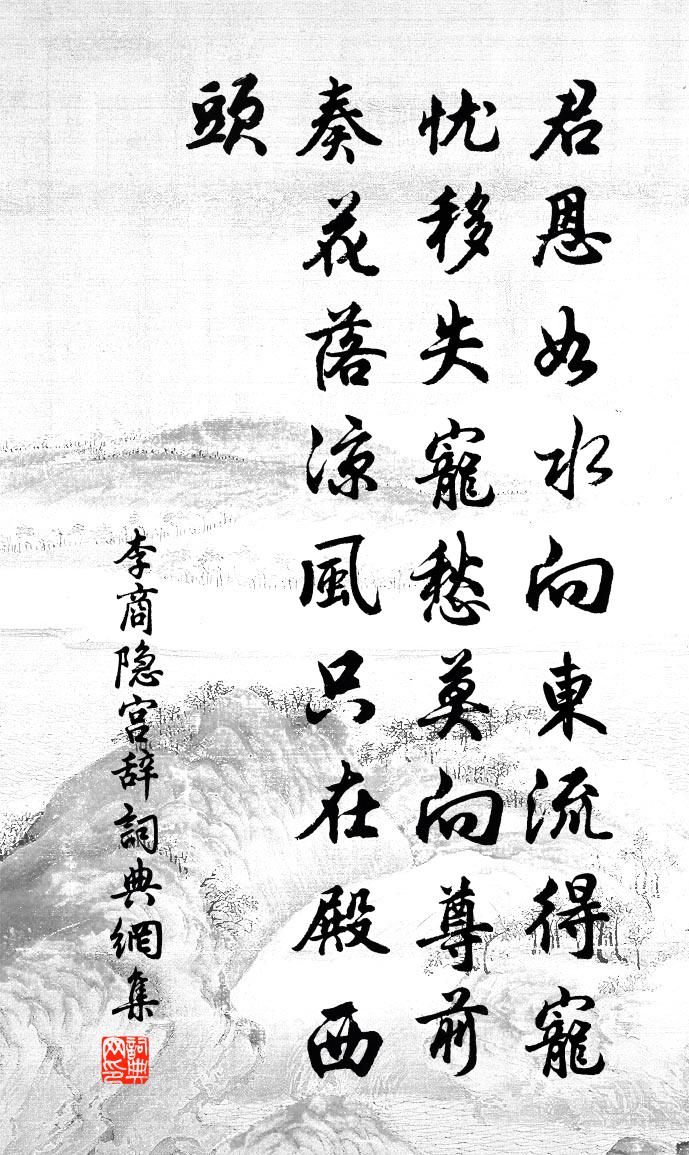 君恩如水向東流得寵
忧移失寵愁莫向尊前
奏花落涼風只在殿西
頭
李商隐宫辞詞典網集
詞典网印